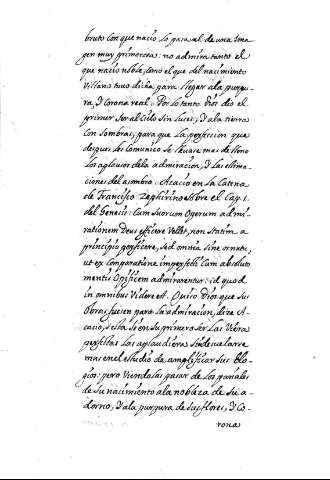 bruto con que nacio lo para el de una Ima
gen muy primorosa: no admira tanto el
que nacio noble, como el que del nacimiento
Villano tuvo dicha para llegar a la purpu
ra, y Corona real. Por lo tanto dios dio el
primer ser al Cielo sin luces, y a la tierra
con sombras, para que la perfeccion que
despues les comunico se llevase mas de lleno
los aplausos de la admiracion, y las estima
ciones del asombro. Acacio en la Catena
de Francisco Zephirino sobre el Cap. 1.
del Genesis: Cum suorum Operum admi
rationem Deus efficere Vellet, non statim a
principio perficere, sed omnia sine ornatu,
ut ex comparatione imperfecti cum absoluto
mentis Opificem admirarentur: id quod
in omnibus Videre est. Quiso Dios que sus
Obras fuesen para la admiracion, dize A
cacio, y si la se en su primero ser las Viera
perfectas las aplaudiera sin de
mas en el estudio de amplificar sus Elo
gios: pero Viendolas pasar de los panales
de su nacimiento a la nobleza de su a
dorno, y a la purpura de sus flores, y Co-
rona